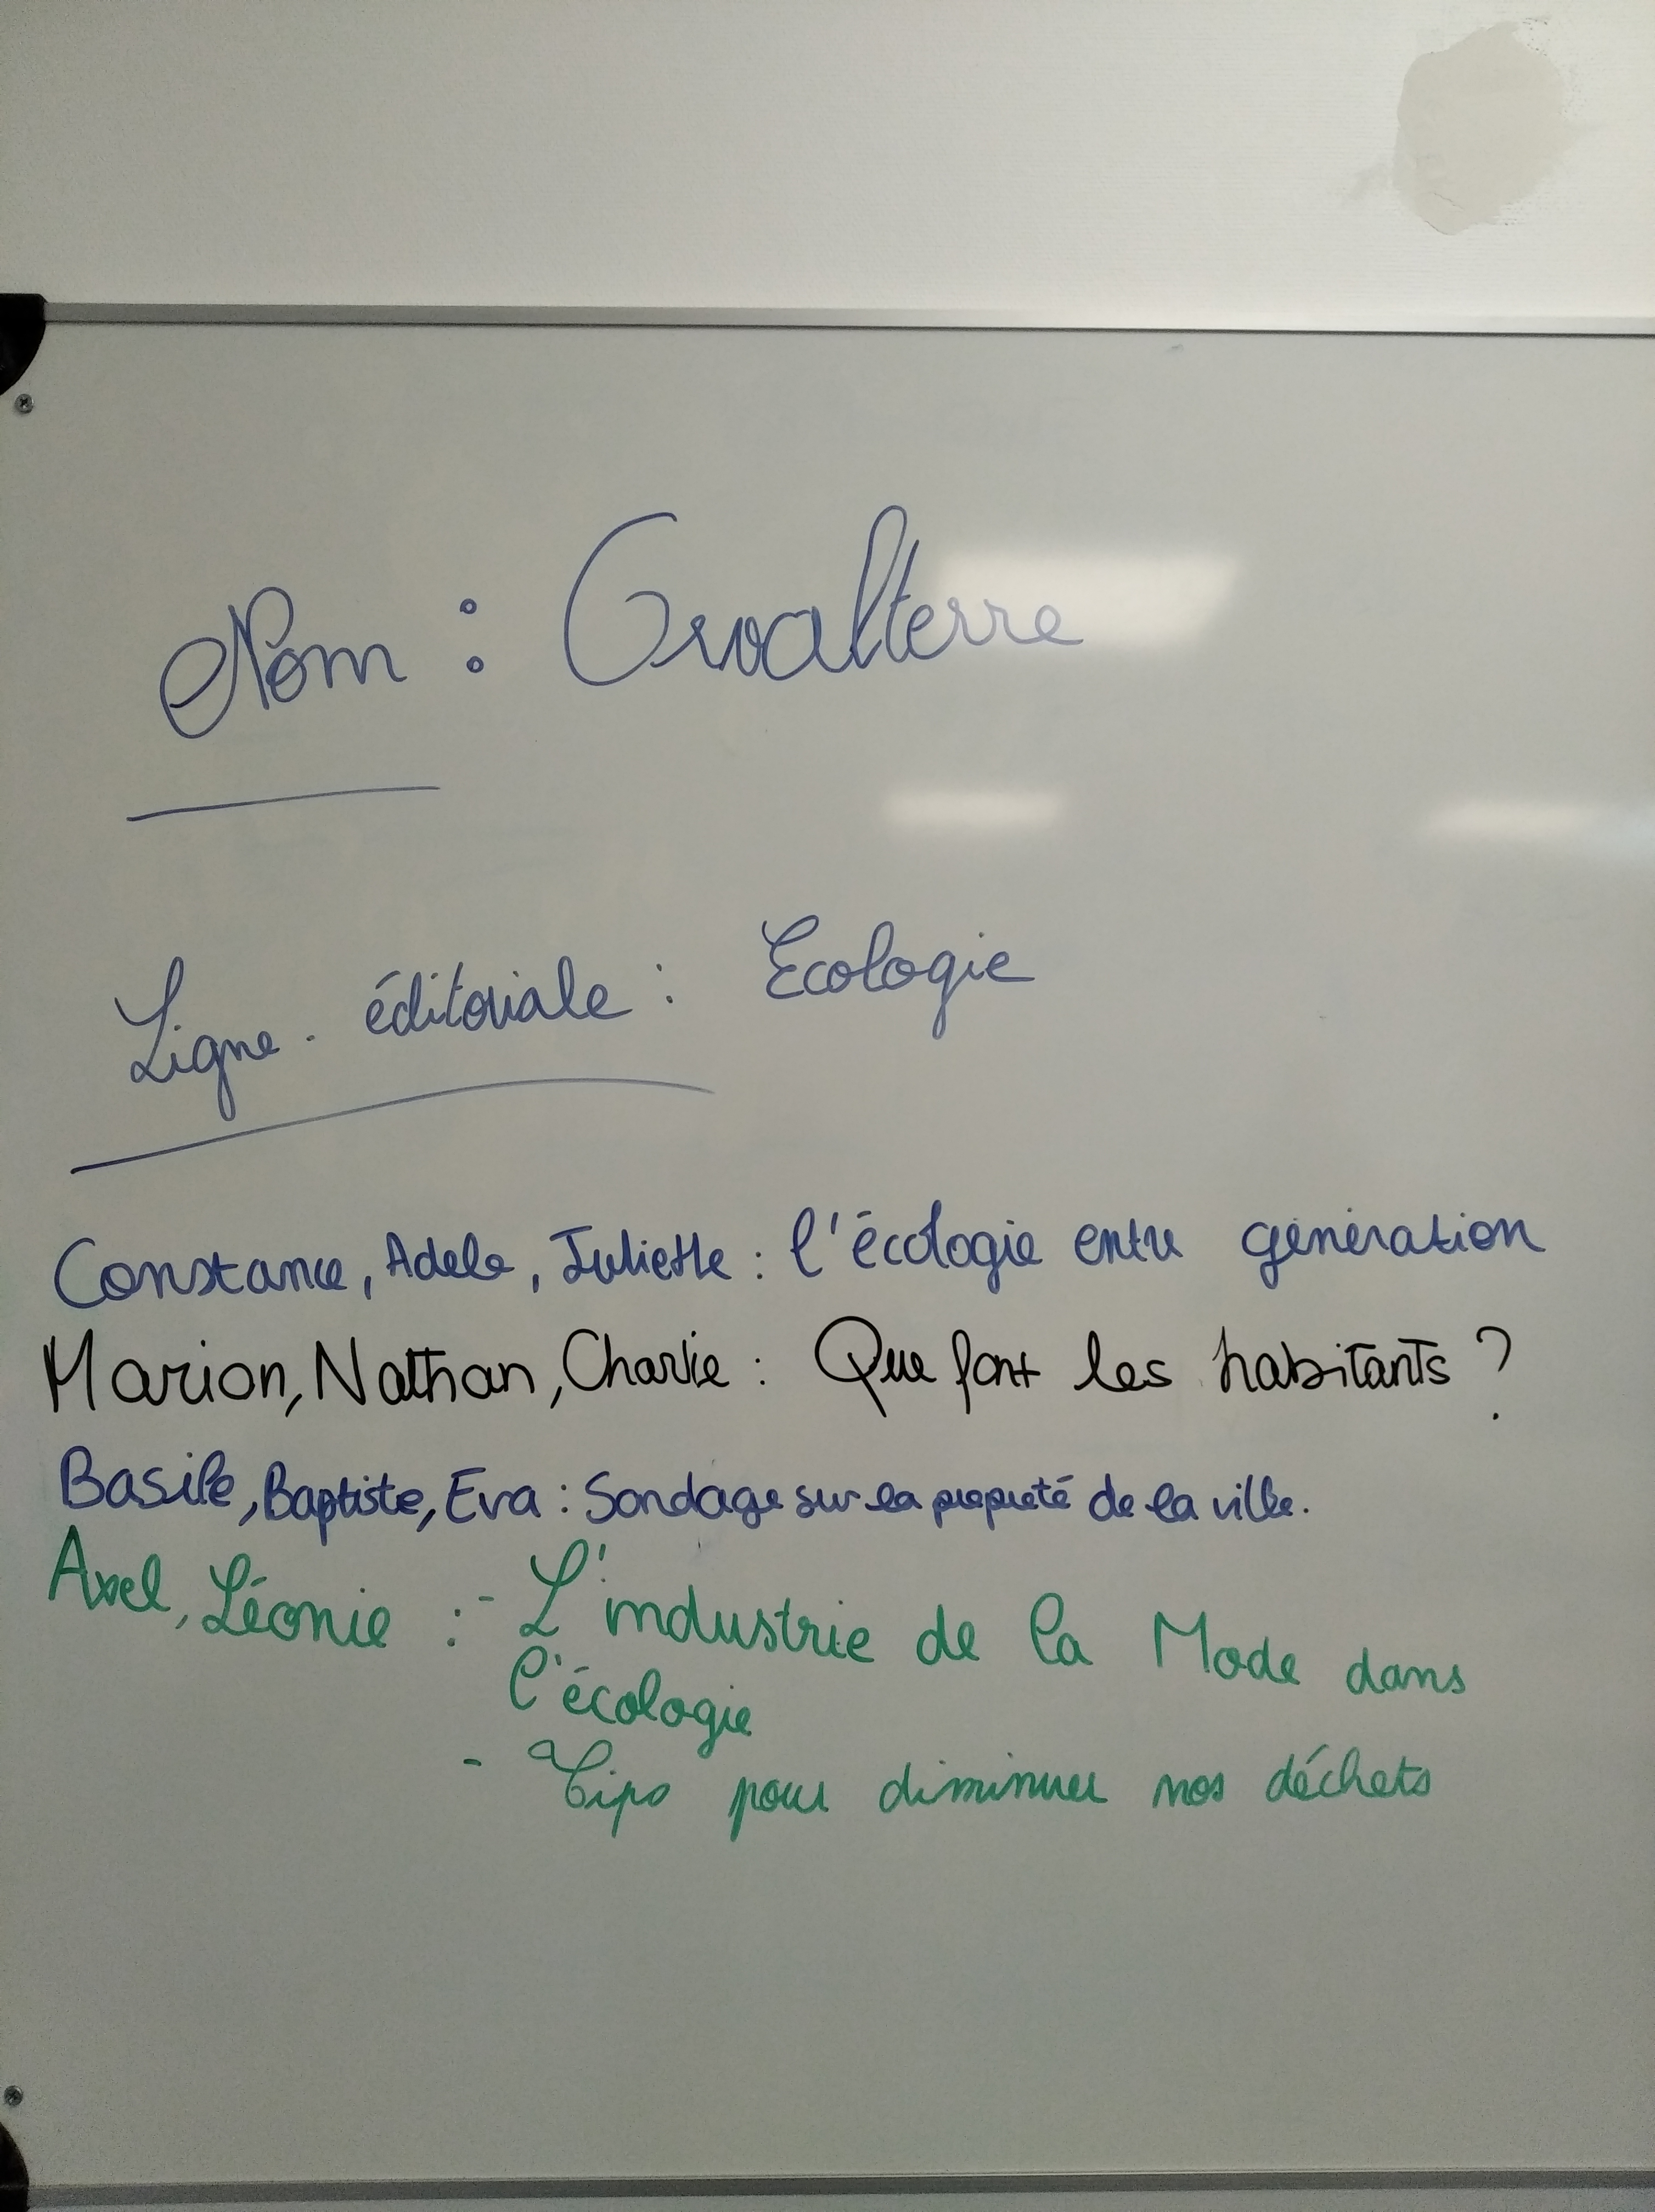 Nom : Ovalterre
Ligne éditoriale : Ecologie
Constance, Adele, Juliette : l'écologie entre génération
Marion, Nathan, Charlie : Que font les habitants ?
Basile, Baptiste, Eva : Sondage sur la propreté de la ville.
Axel, Léonie : - L'industrie de la Mode dans
l'écologie
- Tips pour diminuer nos déchets